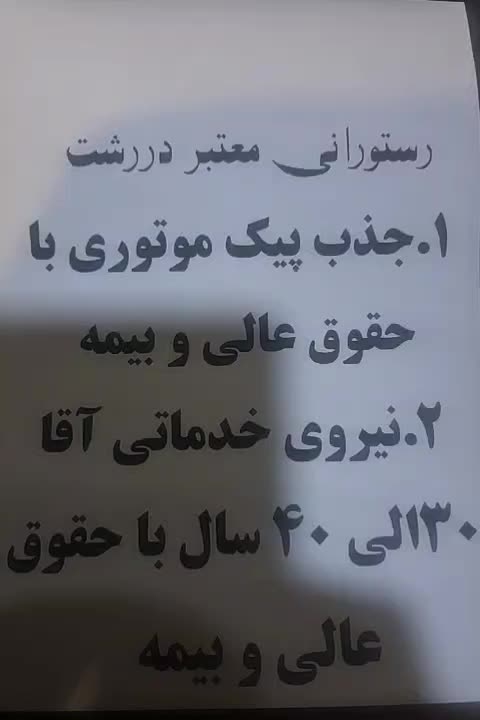 رستورانی معتبر دررشت
۱.جذب پیک موتوری با
حقوق عالی و بیمه
۲.نیروی خدماتی آقا
۳۰الی ۴۰ سال با حقوق
عالی و بیمه